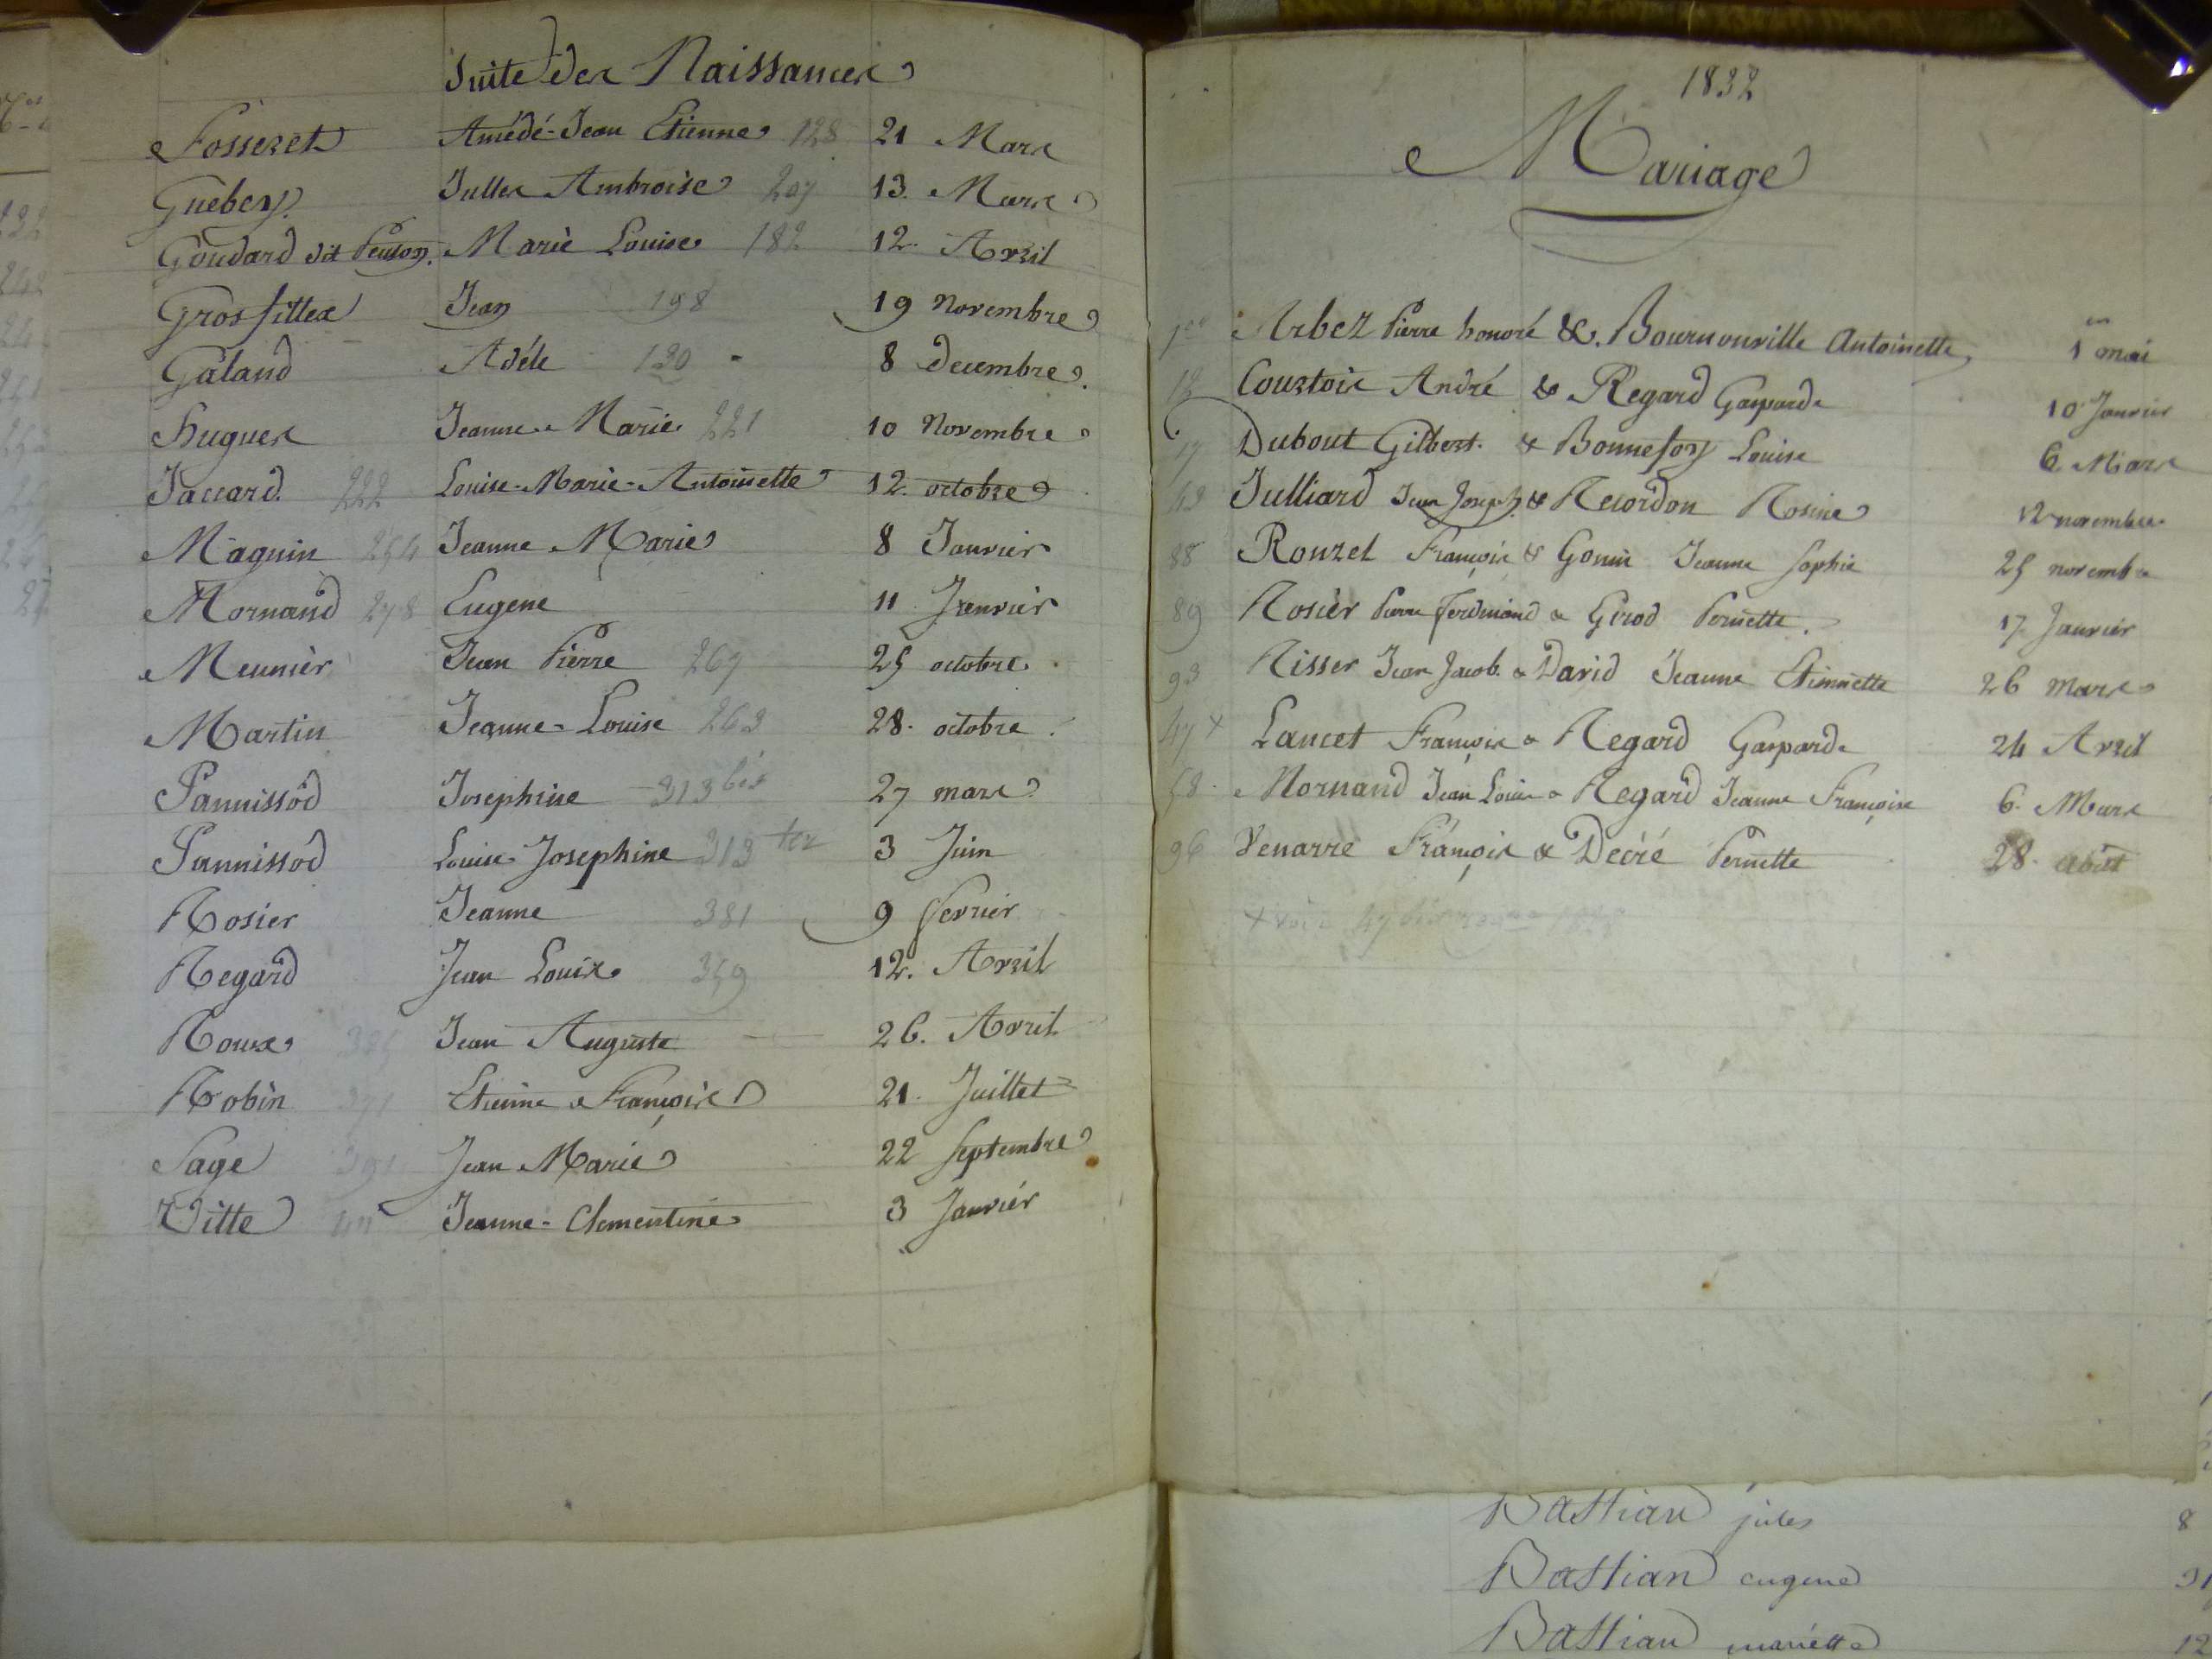 Suite des Naissances
Fosseret Amédé-Jean Etienne 128 21 Mars
Guebey. Julles Ambroise 207 13. Mars
Goudard dit Penson. Marie Louise 182 12. Avril
Grosfillex Jean 198 19 Novembre
Galand Adéle 130 8 Decembre.
Hugues Jeanne Marie 221 10 Novembre
Jaccard. 222 Louise-Marie-Antoinette 12. octobre
Magnin 254 Jeanne Marie 8 Janvier
Mornand 278 Eugene 11 Janvier
Meunier Jean Pierre 267 25 octobre.
Martin Jeanne-Louise 263 28. octobre.
Pannissod Josephine 313 bis 27 mars
Pannissod Louise Josephine 313 ter 3 Juin
Rosier Jeanne 381 9 fevrier
Regard Jean Louis 359 12. Avril
Roux Jean Auguste 26. Avril
Robin 371 Etienne François 21. Juillet
Sage 391 Jean Marie 22 Septembre
Vitte Jeanne-Clementine 3 Janvier
1832
Mariage
Arbez Pierre honoré &. Bournonville Antoinette 1 mai
13 Courtois André & Regard Gasparde 10 Janvier
17 Dubout Gilbert. & Bonnefoy Louise 6 Mars
43 Julliard Jean Joseph & Recordon Rosine 12 novembre
88 Rouzet François & Gonin Jeanne Sophie 25 novembre
89 Rosier Pierre Ferdinand & Girod Pernette. 17 Janvier
93 Risser Jean Jacob. & David Jeanne Etiennette 26 Mars
47 + Lancet François & Regard Gasparde 24 Avril
58. Mornand Jean Louis & Regard Jeanne Françoise 6. Mars
96 Venarre François & Decré Pernette 28. août
+ voir 47 bis
Bastian jules 8
Bastian eugene 31
Bastian mariette 12